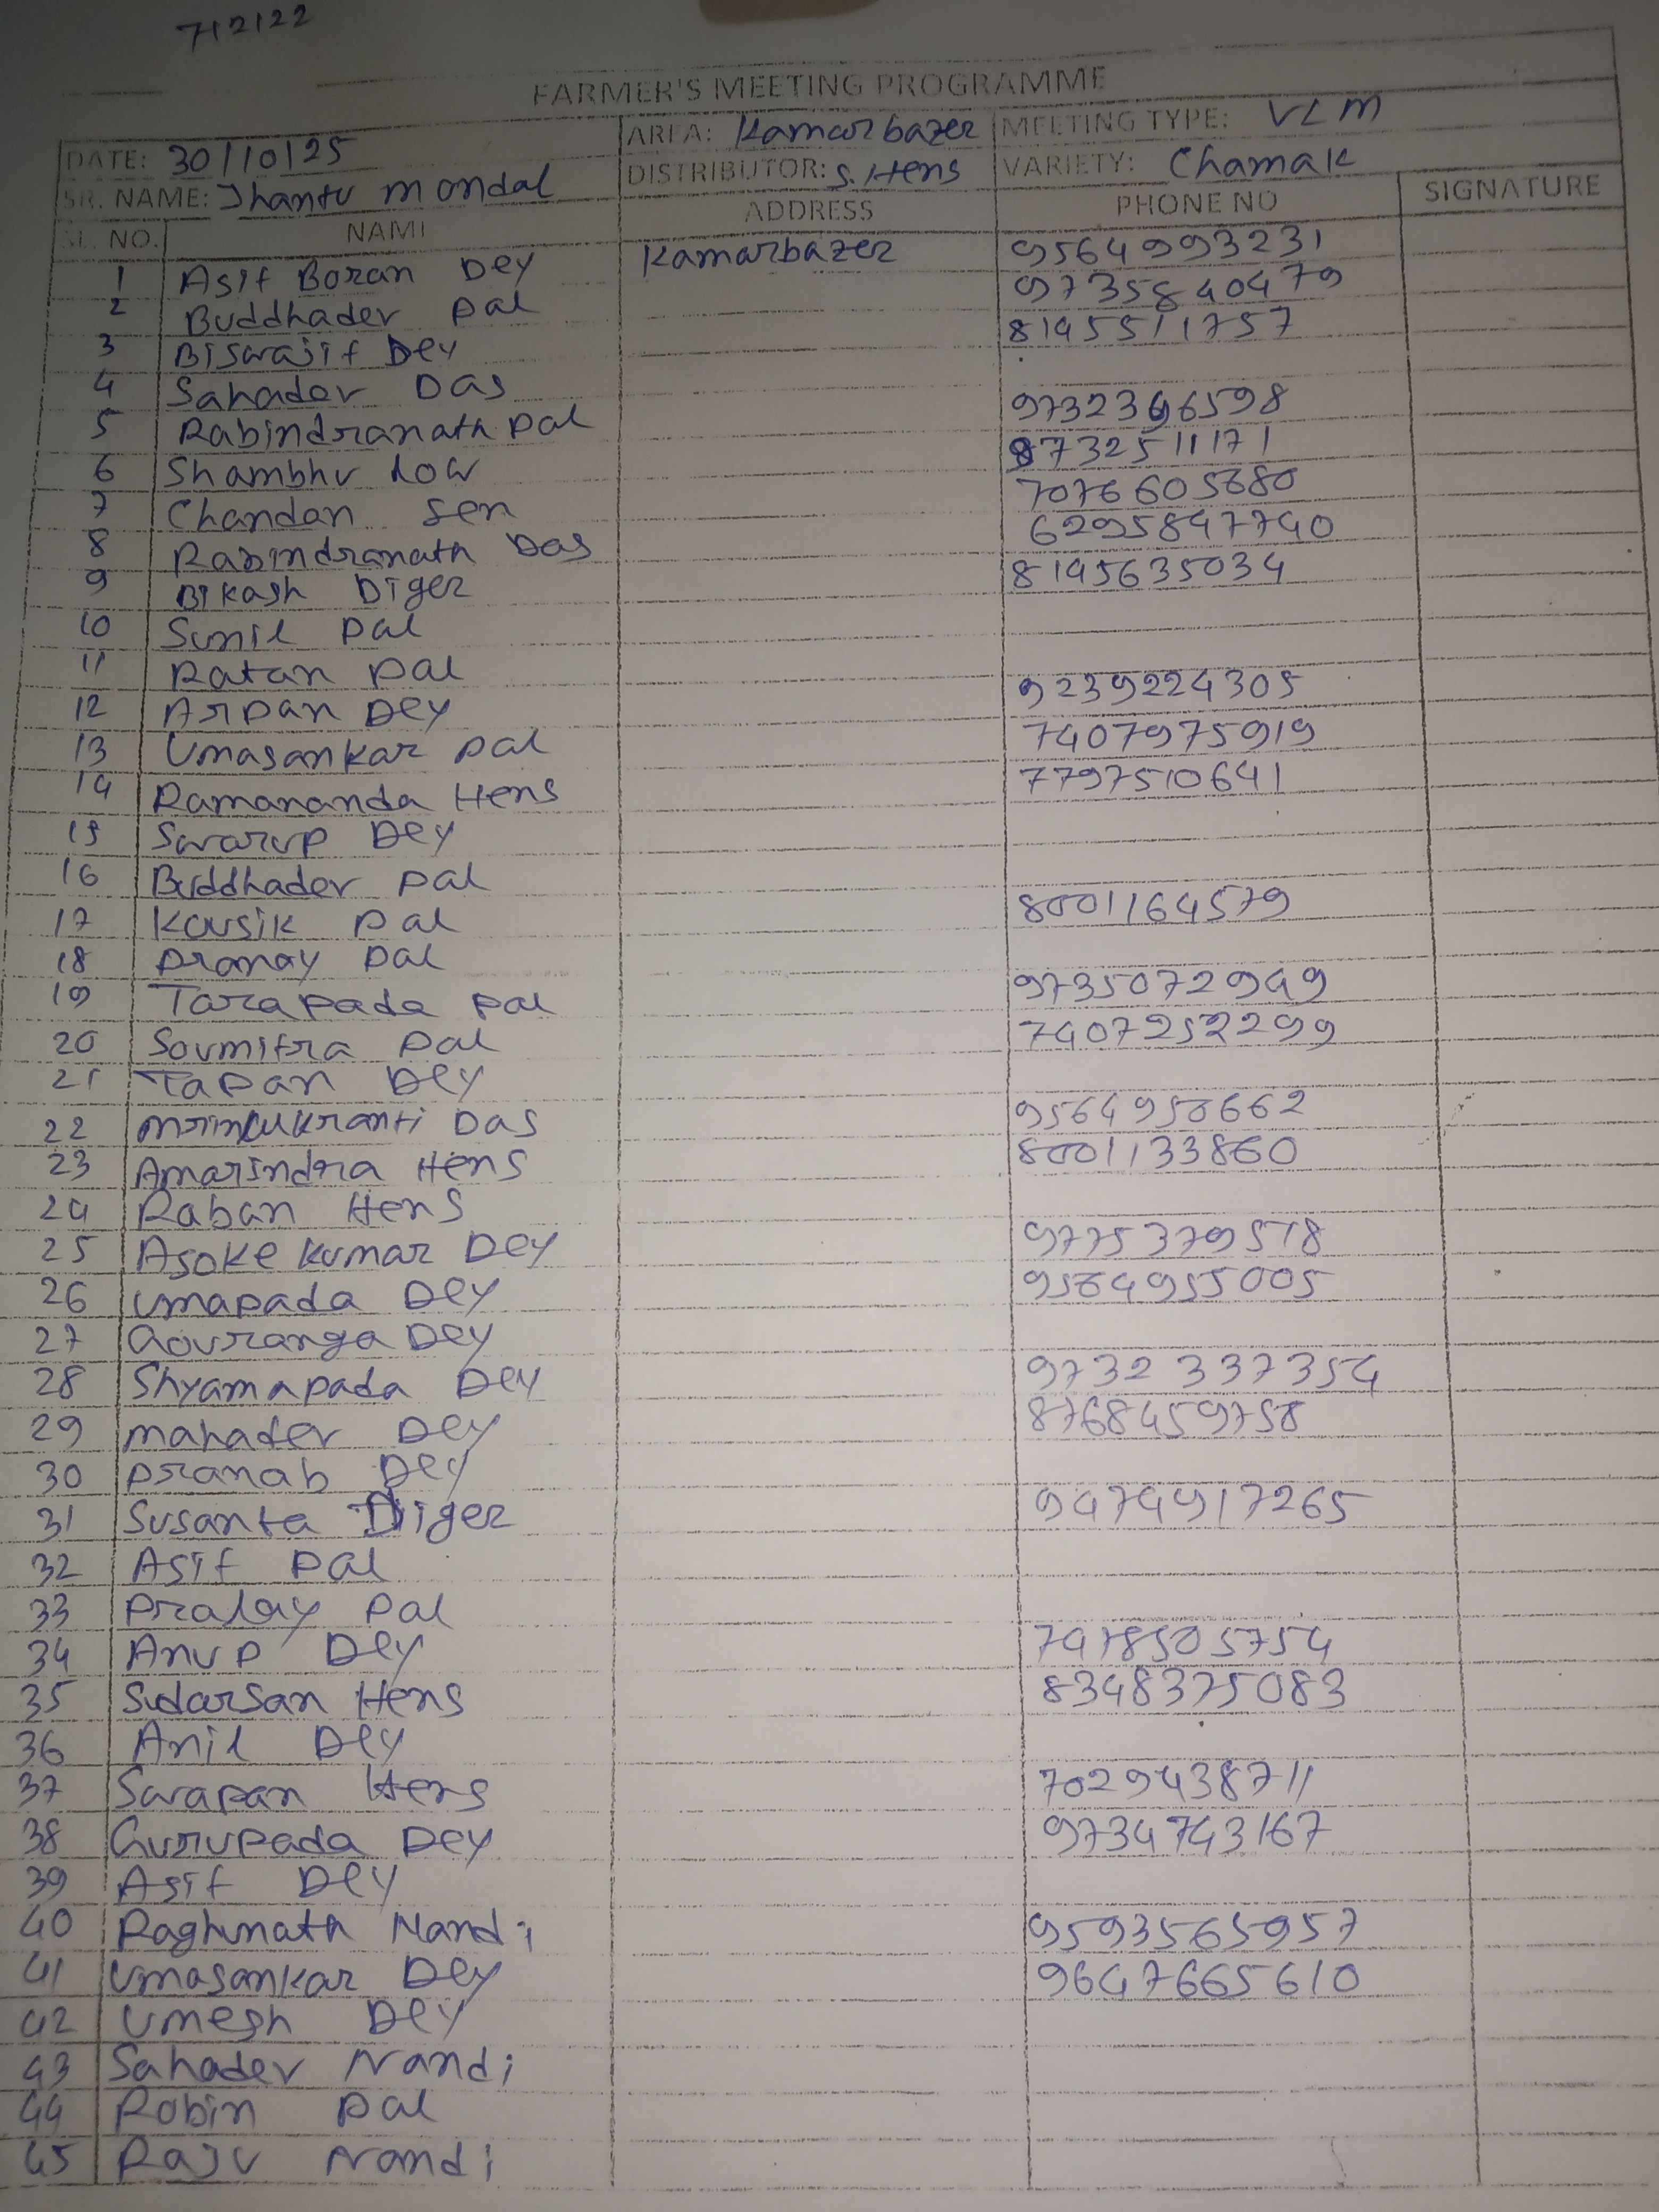 712122
FARMER'S MEETING PROGRAMME
DATE: 30/10/25 AREA: Kamarbazer MEETING TYPE: VLM
SR. NAME: Jhantu mondal DISTRIBUTOR: S. Hens VARIETY: Chamak
SL. NO. NAME ADDRESS PHONE NO SIGNATURE
1 Asit Boran Dey Kamarbazer 9564993231
2 Buddhadev pal 9735840479
3 Biswajit Dey 8145511757
4 Sahadev Das
5 Rabindranath pal 9732346598
6 Shambhu 8732511171
7 Chandan Sen 7076605680
8 Rabindranath Das 6295847740
9 Bikash Diger 8145635034
10 Sunil pal
11 Ratan pal
12 Arpan Dey 9239224305
13 Umasankar pal 7407975919
14 Ramananda Hens 7797510641
15 Swarup Dey
16 Buddhadev pal
17 Kousik pal 8001164579
18 Pranay pal
19 Tarapada pal 9735072949
20 Soumitra pal 7407252299
21 Tapan Dey
22 Das 9564950662
23 Amarindra Hens 8001133860
24 Raban Hens
25 Asoke kumar Dey 9775379518
26 Umapada Dey 9564955005
27 Gouranga Dey
28 Shyamapada Dey 9732337354
29 mahadev Dey 8768459750
30 pranab Dey
31 Susanta Diger 9474917265
32 Asit pal
33 pralay pal
34 Anup Dey 7478505754
35 Sudarsan Hens 8348375083
36 Anil Dey
37 Swapan Hens 7029438711
38 Gurupada Dey 9734743167
39 Asit Dey
40 Raghunath Nandi 9593565957
41 Umasankar Dey 9647665610
42 Umesh Dey
43 Sahadev Nandi
44 Robin pal
45 Raju Nandi